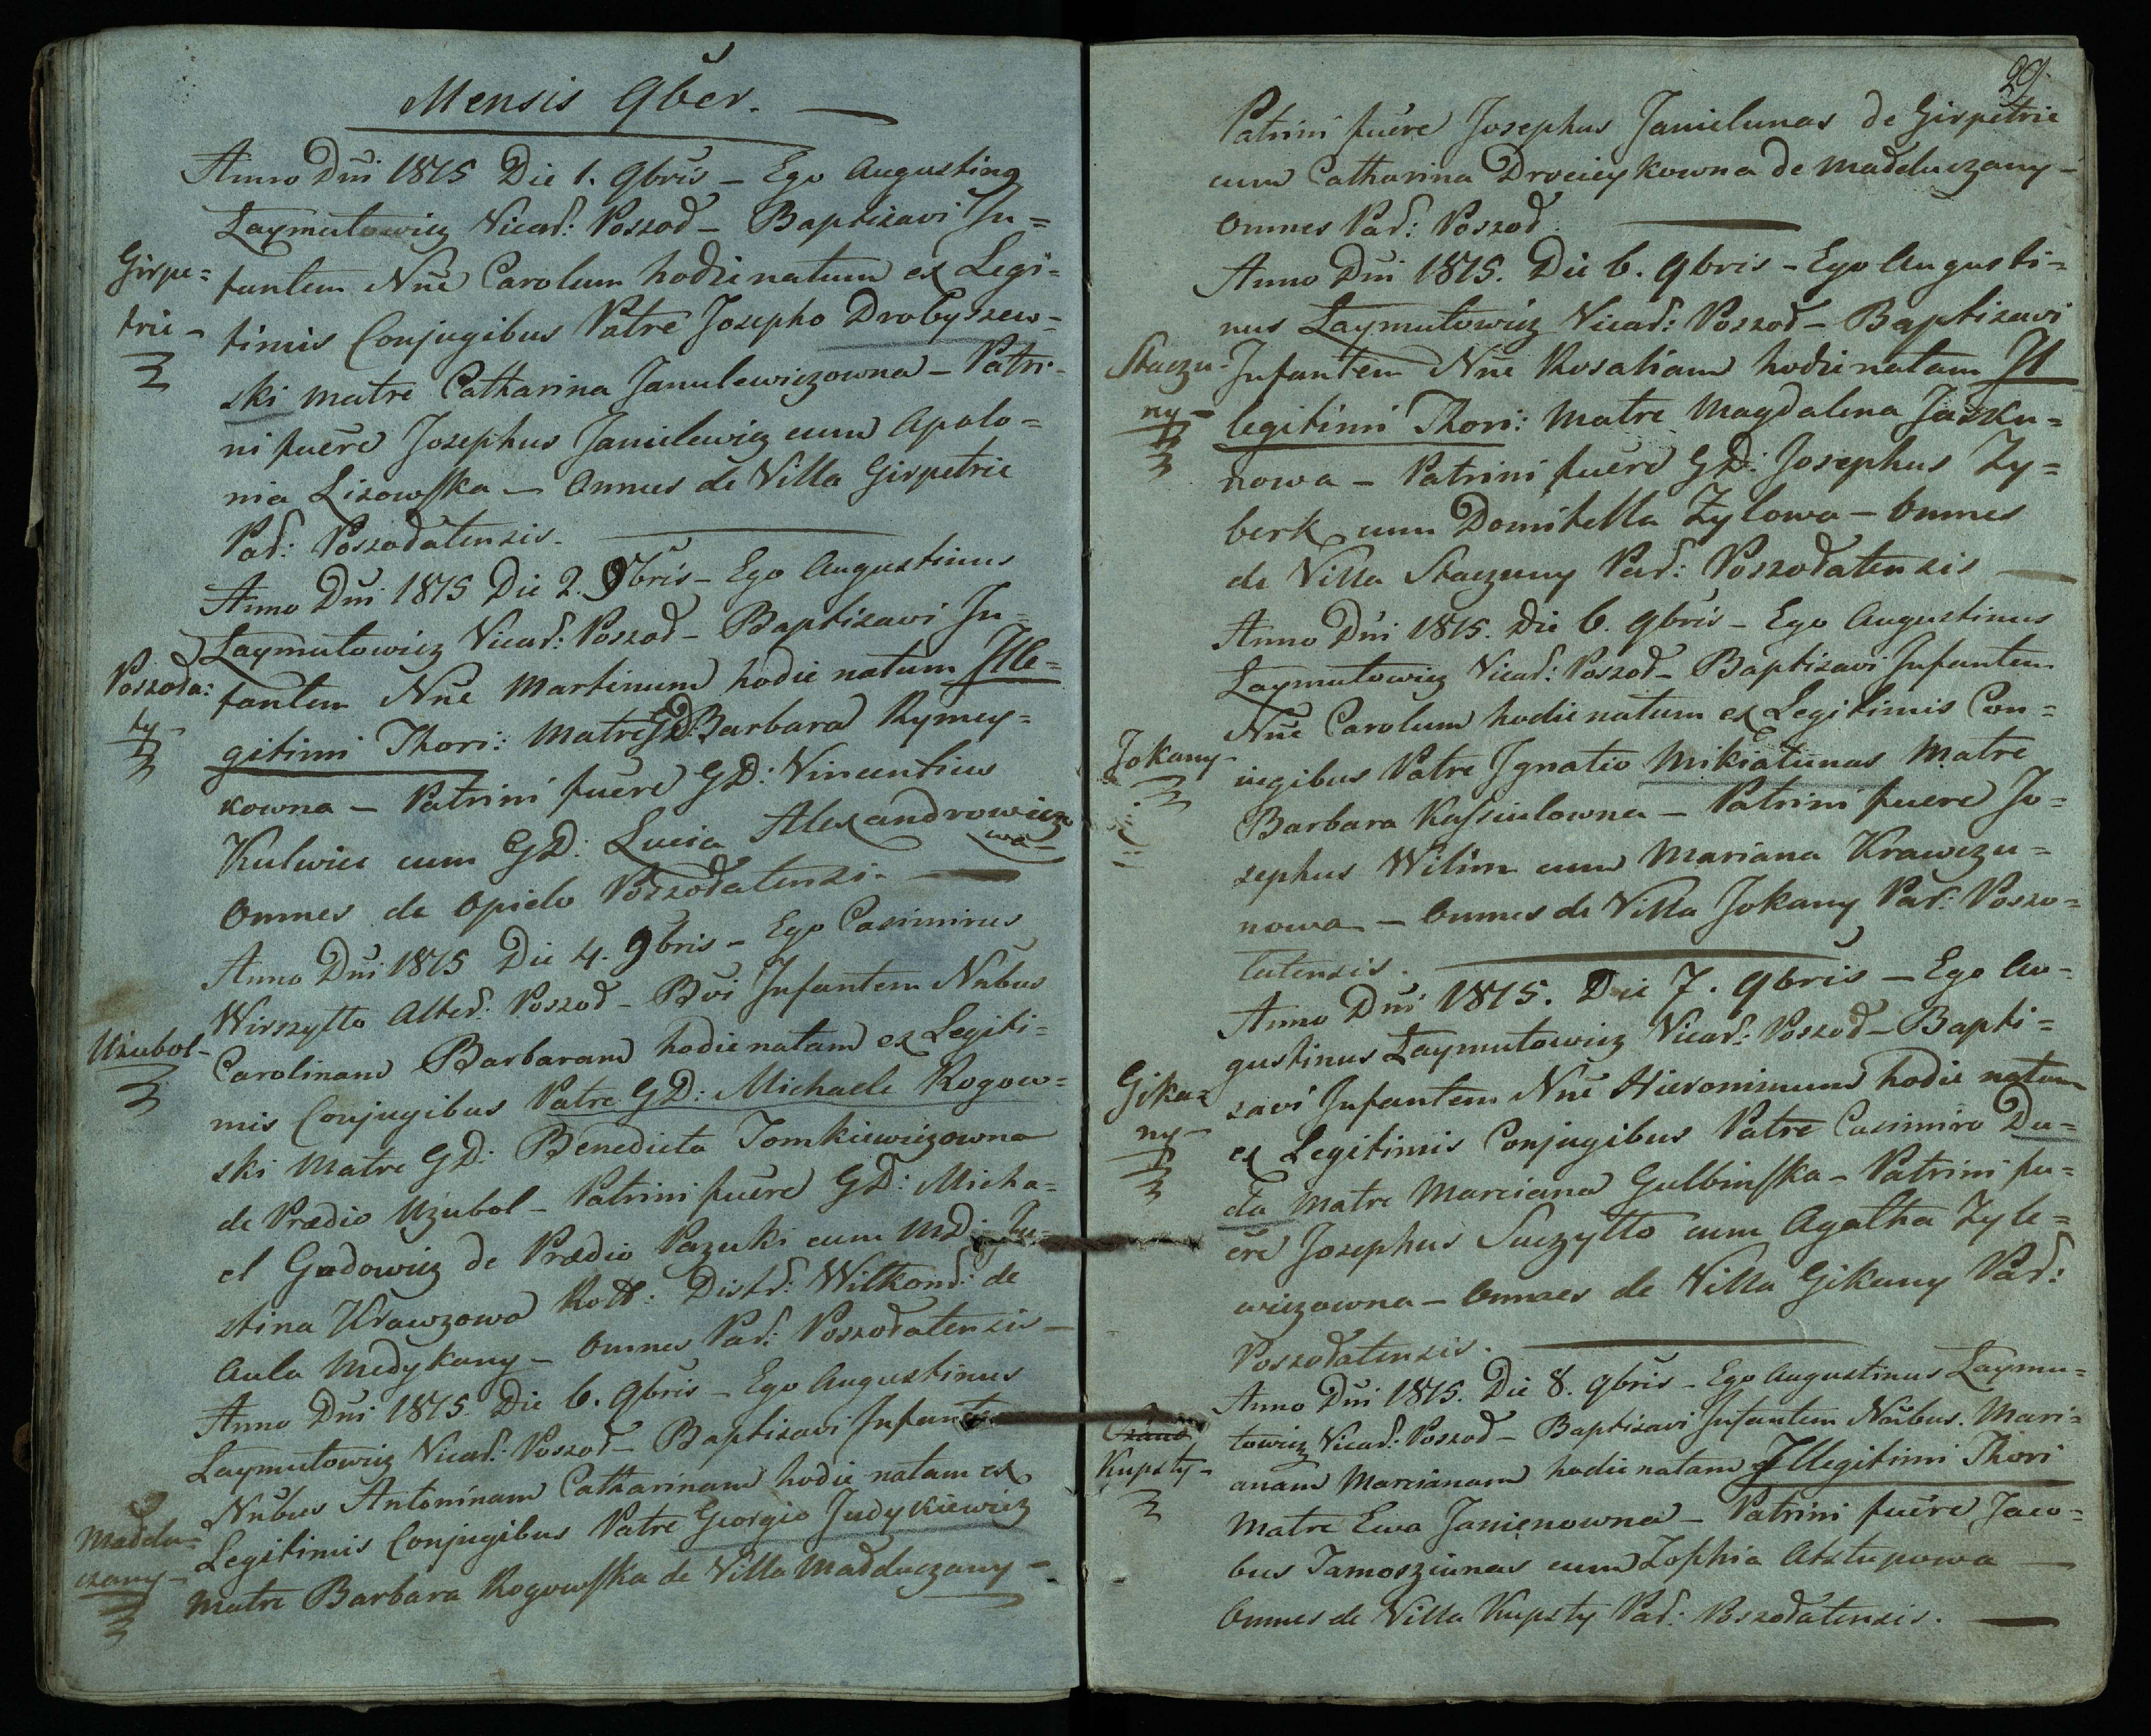 Mensis 9ber.
Anno Dni 1815 Die 1. 9bris – Ego Augustinus
Laymutowicz Vicar: Poszod – Baptizavi In=
Girpe= fantem Nne Carolum hodie natum ex Legi=
trie – timis Conjugibus Patre Josepho Drobyszew=
ski Matre Catharina Janulewiczowna – Patri=
ni fuere Josephus Janulewicz cum Apolo=
nia Lizowska – Omnes de Villa Girpetrie
Par: Poszodatensis.
Anno Dni 1815 Die 2. 9bris – Ego Augustinus
Laymutowicz Vicar: Poszod – Baptizavi In=
Poszoda: fantem Nne Martinum hodie natum Ille=
ty – gitimi Thori: Matre GD: Barbara Rymey=
kowna – Patrini fuere GD: Vincentius
Kulwiec cum GD: Lucia Alexandrowicz
owa
Omnes de Opido Poszodatensi.
Anno Dni 1815 Die 4. 9bris – Ego Casimirus
Wirszytto Alter: Poszod – Bvi Infantem Nnbus
Uzubol – Carolinam Barbaram hodie natam ex Legiti=
mis Conjugibus Patre GD: Michaele Rogow=
ski Matre GD: Benedicta Tomkiewiczowna
de Prædio Uzubol – Patrini fuere GD: Micha=
el Gadowicz de Prædio Pazuki cum MD: Ju=
stina Krawzowa Rott: Distr: Wilkom: de
Aula Medykany – Omnes Par: Poszodatensis –
Anno Dni 1815 Die 6. 9bris – Ego Augustinus
Laymutowicz Vicar: Poszod – Baptizavi Infantem
Nnbus Antoninam Catharinam hodie natam ex
Maddu= Legitimis Conjugibus Patre Georgio Judykiewicz
czany – Matre Barbara Rogowska de Villa Madduczany –
29.
Patrini fuere Josephus Janielunas de Girpetrie
cum Catharina Drocieykowna de Madduczany –
Omnes Par: Poszod.
Anno Dni 1815. Die 6. 9bris – Ego Augusti=
nus Laymutowicz Vicar: Poszod – Baptizavi
Staczu= Infantem Nne Rosaliam hodie natam Il
ny – legitimi Thori: Matre Magdalena Jasku=
nowa – Patrini fuere GD: Josephus Zy=
berk cum Domitella Zylowa – Omnes
de Villa Staczuny Par: Poszodatensis
Anno Dni 1815. Die 6. 9bris – Ego Augustinus
Laymutowicz Vicar: Poszod – Baptizavi Infantem
Nne Carolum hodie natum ex Legitimis Con=
Jokany – iugibus Patre Ignatio Mikiatunas Matre
Barbara Kassiulowna – Patrini fuere Jo=
sephus Wilim cum Mariana Krawczu=
nowa – Omnes de Villa Jokany Par: Poszo=
tatensis.
Anno Dni 1815. Die 7. 9bris – Ego Au=
gustinus Laymutowicz Vicar: Poszod – Bapti=
Gika= zavi Infantem Nne Hieronimum hodie natum
ny – ex Legitimis Conjugibus Patre Casimiro Du=
da Matre Marciana Gulbinska – Patrini fu=
ere Josephus Suczytto cum Agatha Zyle=
wiczowna – Omnes de Villa Gikany Par:
Poszodatensis.
Anno Dni 1815. Die 8. 9bris – Ego Augustinus Laymu=
towicz Vicar: Poszod – Baptizavi Infantem Nnibus. Mari=
Kupsty – anam Marcianam hodie natam Illegitimi Thori
Matre Ewa Janienowna – Patrini fuere Jaco=
bus Tamosziunas cum Zophia Atstupowa –
Omnes de Villa Kupsty Par: Poszodatensis.